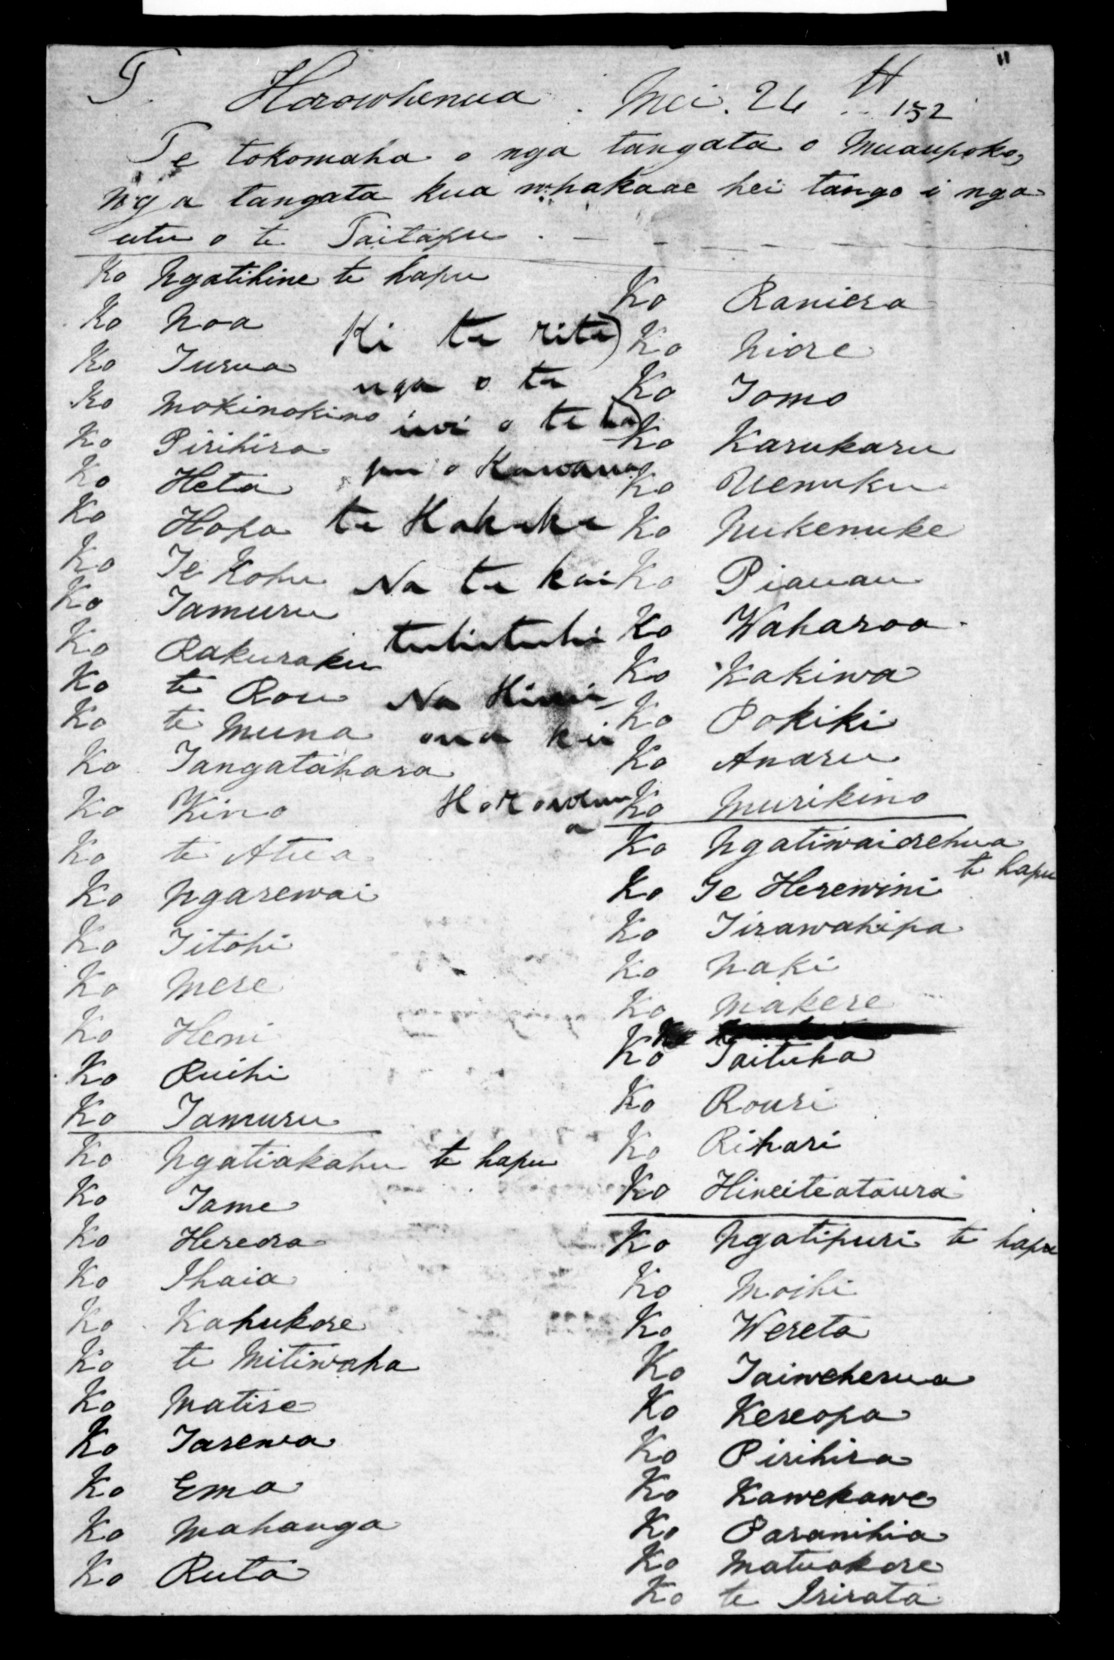 T. Horowhenua. Mei. 24 th 152
"
Te tokomaha o nga tangata o Muaupoko,
nga tangata kua whakaae hei tango i nga
utu o te Taitapu.
Ko Ngatihine te hapu
Ko Noa
Ko Turua
Ko Mokinokino
Ko Pirihira
Ko Heta
Ko Hopa
Ko Te Kohu
Ko Tamuru
Ko Rakuraku
Ko te Rou
Ko te Muna
Ko Tangatahara
Ko Kino
Ko te Atua
Ko Ngarewai
Ko Titohi
Ko Mere
Ko Heni
Ko Ruihi
Ko Tamuru
Ko Ngatiakahu te hapu
Ko Tame
Ko Hereora
Ko Ihaia
Ko Kahukore
Ko te Mitiwaha
Ko Matire
Ko Tarewa
Ko Ema
Ko Mahanga
Ko Ruta
Ki te rite
nga o te
iwi o te ha
pu o Kawana
te Hakeke
Na te kai
tuhituhi
Na Himi
ona kii
Horowhenu
a
Ko Raniera
Ko Niore
Ko Tomo
Ko Karukaru
Ko Uenuku
Ko Nukenuke
Ko Piauau
Ko Waharoa
Ko Kakiwa
Ko Pokiki
Ko Anaru
Ko Murikino
Ko Ngatiwaiorehua
te hapu
Ko Te Herewini
Ko Tirawahipa
Ko Naki
Ko Makere
Ko
Ko Taituha
Ko Rouri
Ko Rihari
Ko Hineiteataura
Ko Ngatipuri te hapu
Ko Moihi
Ko Wereta
Ko Taiweherua
Ko Kereopa
Ko Pirihira
Ko Kawekawe
Ko Paranihia
Ko Matuakore
Ko te Irirata